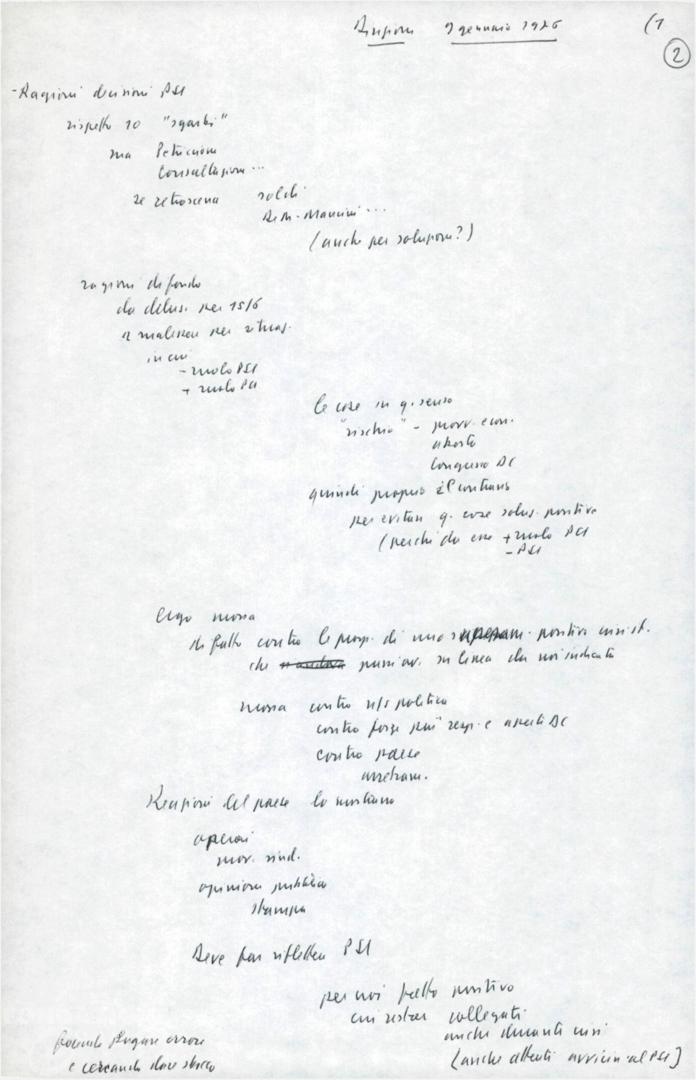 Direzione 9 gennaio 1976 (1
2
- Ragioni decisioni PSI
rispetto 10 "sgarbi"
ma Petriccione
Consultazione ...
se retroscena soldi
De M. - Mancini ...
(anche per soluzione?)
ragioni di fondo
da delus. per 15/6
e malessere per situaz.
in cui
- ruolo PSI
+ ruolo PCI
le cose in q. senso
"rischio" - provv. econ.
aborto
Congresso DC
quindi proprio il contrario
per evitare q. cose soluz. positive
(perché da esse + ruolo PCI
- PSI
Ergo mossa
di fatto contro le prosp. di una positiva
che in linea da noi indicata
mossa contro ns politica
contro forze più resp. e aperte DC
contro paese
arretram.
Reazioni del paese lo mostrano
operai
mov. sind.
opinione pubblica
stampa
Deve far riflettere PSI
per noi fatto positivo
cui restare collegati
anche durante crisi
(anche attenti avvicin. al PSI)
facendo pagare errore
e cercando dare sbocco